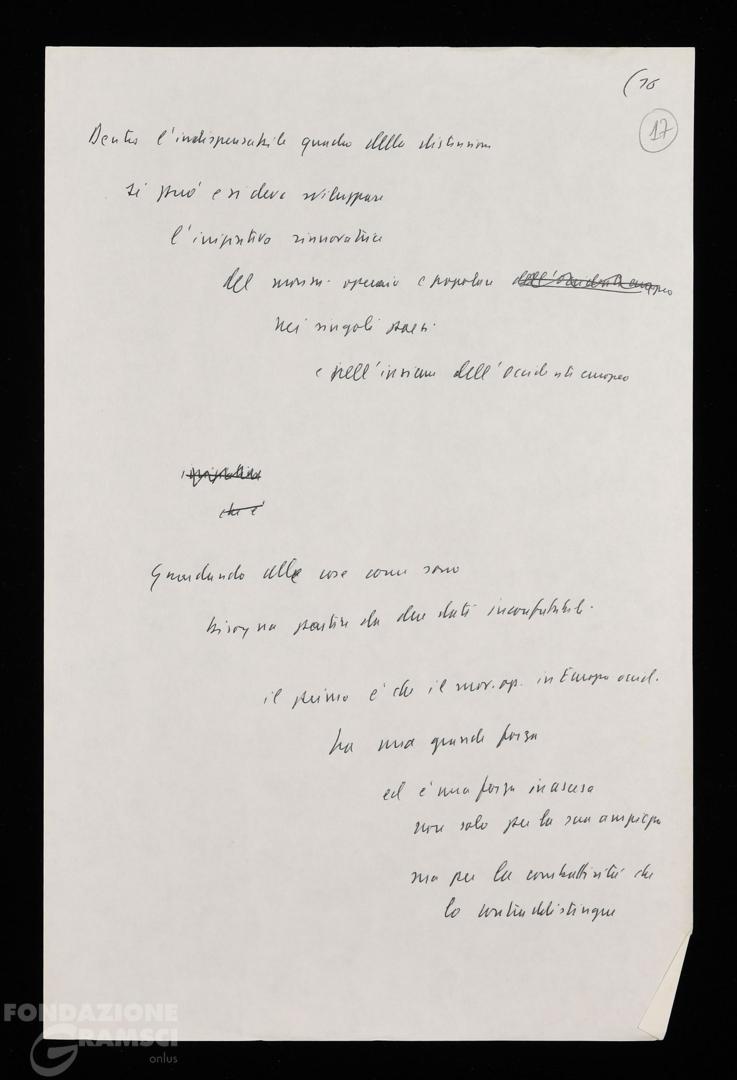 (16
17
Dentro l'indispensabile quadro della distensione
si può e si deve sviluppare
l'iniziativa rinnovatrice
del movim. operaio e popolare dell'Occidente europeo
nei singoli paesi
e nell'insieme dell'Occidente europeo
che è
Guardando alle cose come sono
bisogna partire da due dati inconfutabili.
il primo è che il mov. op. in Europa occid.
ha una grande forza
ed è una forza in ascesa
non solo per la sua ampiezza
ma per la combattività che
lo contraddistingue
FONDAZIONE
GRAMSCI
onlus